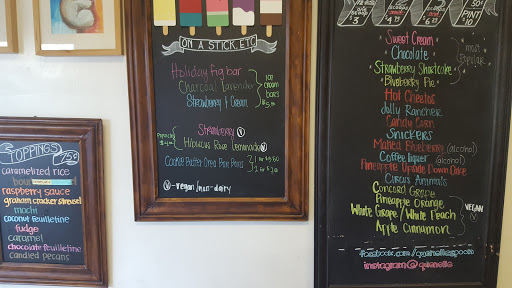 TOPPINGS 75¢
caramelized rice
raspberry sauce
graham cracker streusel
mochi
coconut feuilletine
fudge
caramel
chocolate feuilletine
candied pecans
ON A STICK, ETC
Holiday fig bar
Charcoal Lavender
Strawberry & Cream
ice cream bars
Strawberry V
Hibiscus Rose Lemonade V
Cookie Butter Oreo Bon Bons
V - vegan/non-dairy
PINT
Sweet Cream
Chocolate
Strawberry Shortcake
Blueberry Pie
most popular
Hot Cheetos
Jolly Rancher
Candy Corn
Snickers
Malted Blueberry (alcohol)
Coffee liquer (alcohol)
Pineapple Upside Down Cake
Circus Animals
Concord Grape
Pineapple Orange
White Grape/White Peach
Apple Cinnamon
VEGAN V
facebook.com/quenellespoon
instagram@quenelle